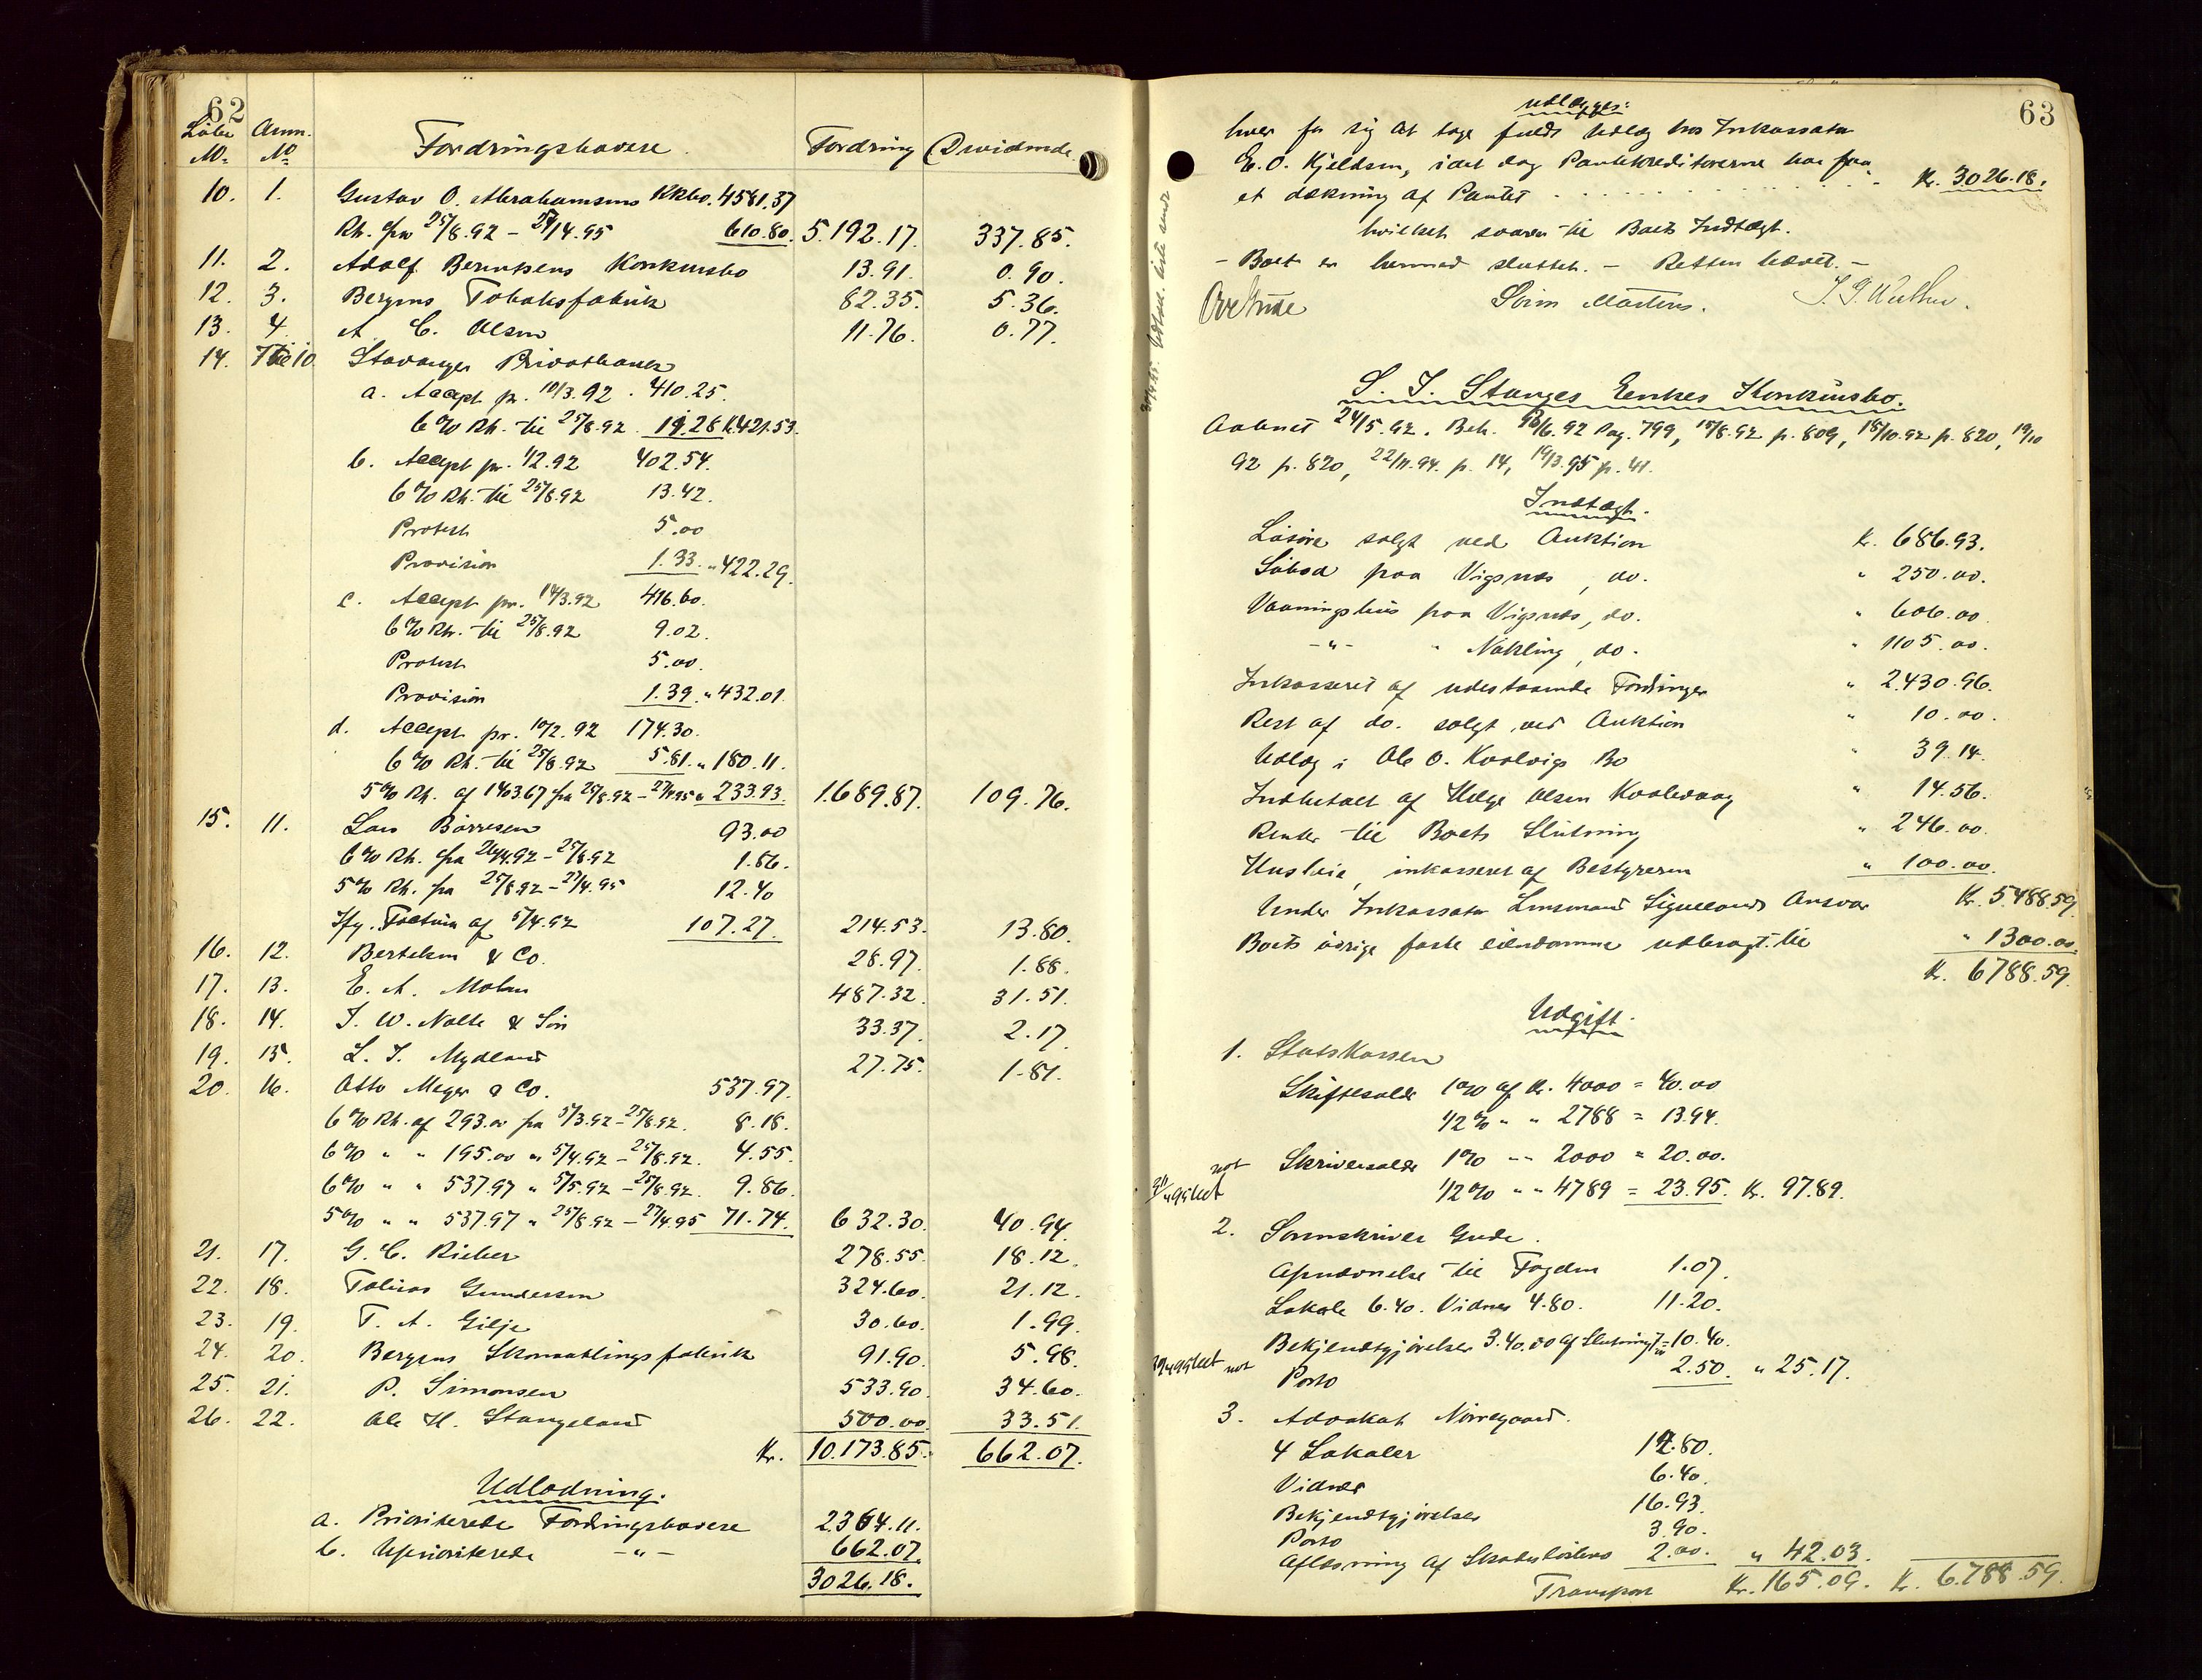 62
Løbe No. Anm. No. Fordringshavere Fordring Dividende
10. 1. Gustav O. Abrahamsens Kkbo. 4581.37
Rt. fra 25/8.92 – 27/4.95 610.80. 5.192.17. 337.85.
11. 2. Adolf Berntsens Konkursbo 13.91. 0.90.
12. 3. Bergens Tobaksfabrik 82.35. 5.36.
13. 4. A. C. Olsen 11.76. 0.77.
14. 10. Stavanger Privatbank
a. Accept pr. 10/3.92 . 410.25.
6% Rt. til 25/8.92 11.28 k. 421.53.
b. Accept pr. 1/2.92 402.54.
6% Rt. til 25/8.92 13.42.
Protest 5.00
Provision 1.33. " 422.29.
c. Accept pr. 14/3.92 416.60.
6% Rt. til 25/8.92 9.02.
Protest 5.00.
Provision 1.39. " 432.01
d. Accept pr. 10/2.92 174.30.
6% Rt. til 25/8.92 5.81. " 180.11.
5% Rt. af 1403.67 fra 25/8.92 – 27/4.95 " 233.93. 1.689.87. 109.76.
15. 11. Lars Børresen 93.00
6% Rt. fra 26/4.92 – 25/8.92 1.86.
5% Rt. fra 25/8.92 – 27/4.95 12.40
Ifg. Factura af 5/4.92 107.27. 214.53. 13.80.
16. 12. Bertelsen & Co. 28.97. 1.88.
17. 13. E. A. Molau 487.32. 31.51.
18. 14. J. W. Nolte & Søn 33.37. 2.17.
19. 15. L. J. Mydland 27.75. 1.81.
20. 16. Otto Meyer & Co. 537.97.
6% Rt. af 293.00 fra 5/3.92 – 25/8.92. 8.18.
6% " " 195.00 " 5/4.92 – 25/8.92. 4.55.
6% " " 537.97 " 5/5.92 – 25/8.92. 9.86.
5% " " 537.97 " 25/8.92 – 27/4.95 71.74. 632.30. 40.94.
21. 17. G. C. Rieber 278.55. 18.12.
22. 18. Tobias Gundersen 324.60. 21.12.
23. 19. T. A. Gilje 30.60. 1.99.
24. 20. Bergens Skomatlingsfabrik 91.90. 5.98.
25. 21. P. Simonsen 533.90. 34.60.
26. 22. Ole H. Stangeland 500.00. 33.51.
Kr. 10.173.85. 662.07.
Udlodning.
a. Prioriterede Fordringshavere 2364.11.
b. Uprioriterede –"– 662.07.
3026.18.
63
udlægges:
hver for sig at tage fuldt Udlæg hos Inkassator
E. O. Kjeldsen, idet dog Pantekreditorerne har faa-
et dækning af Pantet . . . Kr. 3026.18.
hvilket svarer til Boets Indtægt.
– Boet er hermed sluttet. – Retten hævet. –
Ove Gude Søren Mortens.
S. J. Stanges Enkes Konkursbo.
Aabnet 24/5.92. Beh. 18/6.92 Pag. 799, 15/8.92 p. 809, 18/10.92 p. 820, 19/10
92 p. 820, 22/11.94. p. 14, 19/3.95 p. 41.
Indtægt.
Løsøre solgt ved Auktion Kr. 686.93.
Søbod paa Vigsnæs, do. " 250.00.
Vaaningshus paa Vigsnæs, do. " 606.00
–"– " Nøkling, do. " 1105.00.
Inkasseret af udestaaende Fordringer " 2.430.96.
Rest af do. solgt ved Auktion " 10.00.
Udlæg i Ole O. Kvalvigs Bo " 39.14.
Indbetalt af Helge Olsen Kvalevaag " 14.56.
Renter til Boets Slutning " 246.00.
Husleie, inkasseret af Bestyreren " 100.00.
Under Inkassator Lensmand Ansvar Kr. 5.488.59.
Boets øvrige faste eiendomme udbragt til " 1300.00.
Kr. 6788.59.
Udgift.
1. Statskassen
Skiftesalær 1% af Kr. 4000 = 40.00
1/2% " " 2788 = 13.94.
Skriversalær 1% " " 2000 = 20.00.
1/2% " " 4789 = 23.95. Kr. 97.89.
2. Sorenskriver Gude.
Opnævnelse til Fogden 1.07.
Lokale 6.40. Vidner 4.80. 11.20.
Bekjendtgjørelser 3.40. (og af Slutning) = 10.40.
Porto 2.50. " 25.17.
3. Advokat Nørregaard.
4 Lokaler 12.80.
Vidner 6.40.
Bekjendtgjørelser 16.93.
Porto 3.90.
Aflæsning af 2.00. " 42.03.
Transport Kr. 165.09. Kr. 6.788.59.